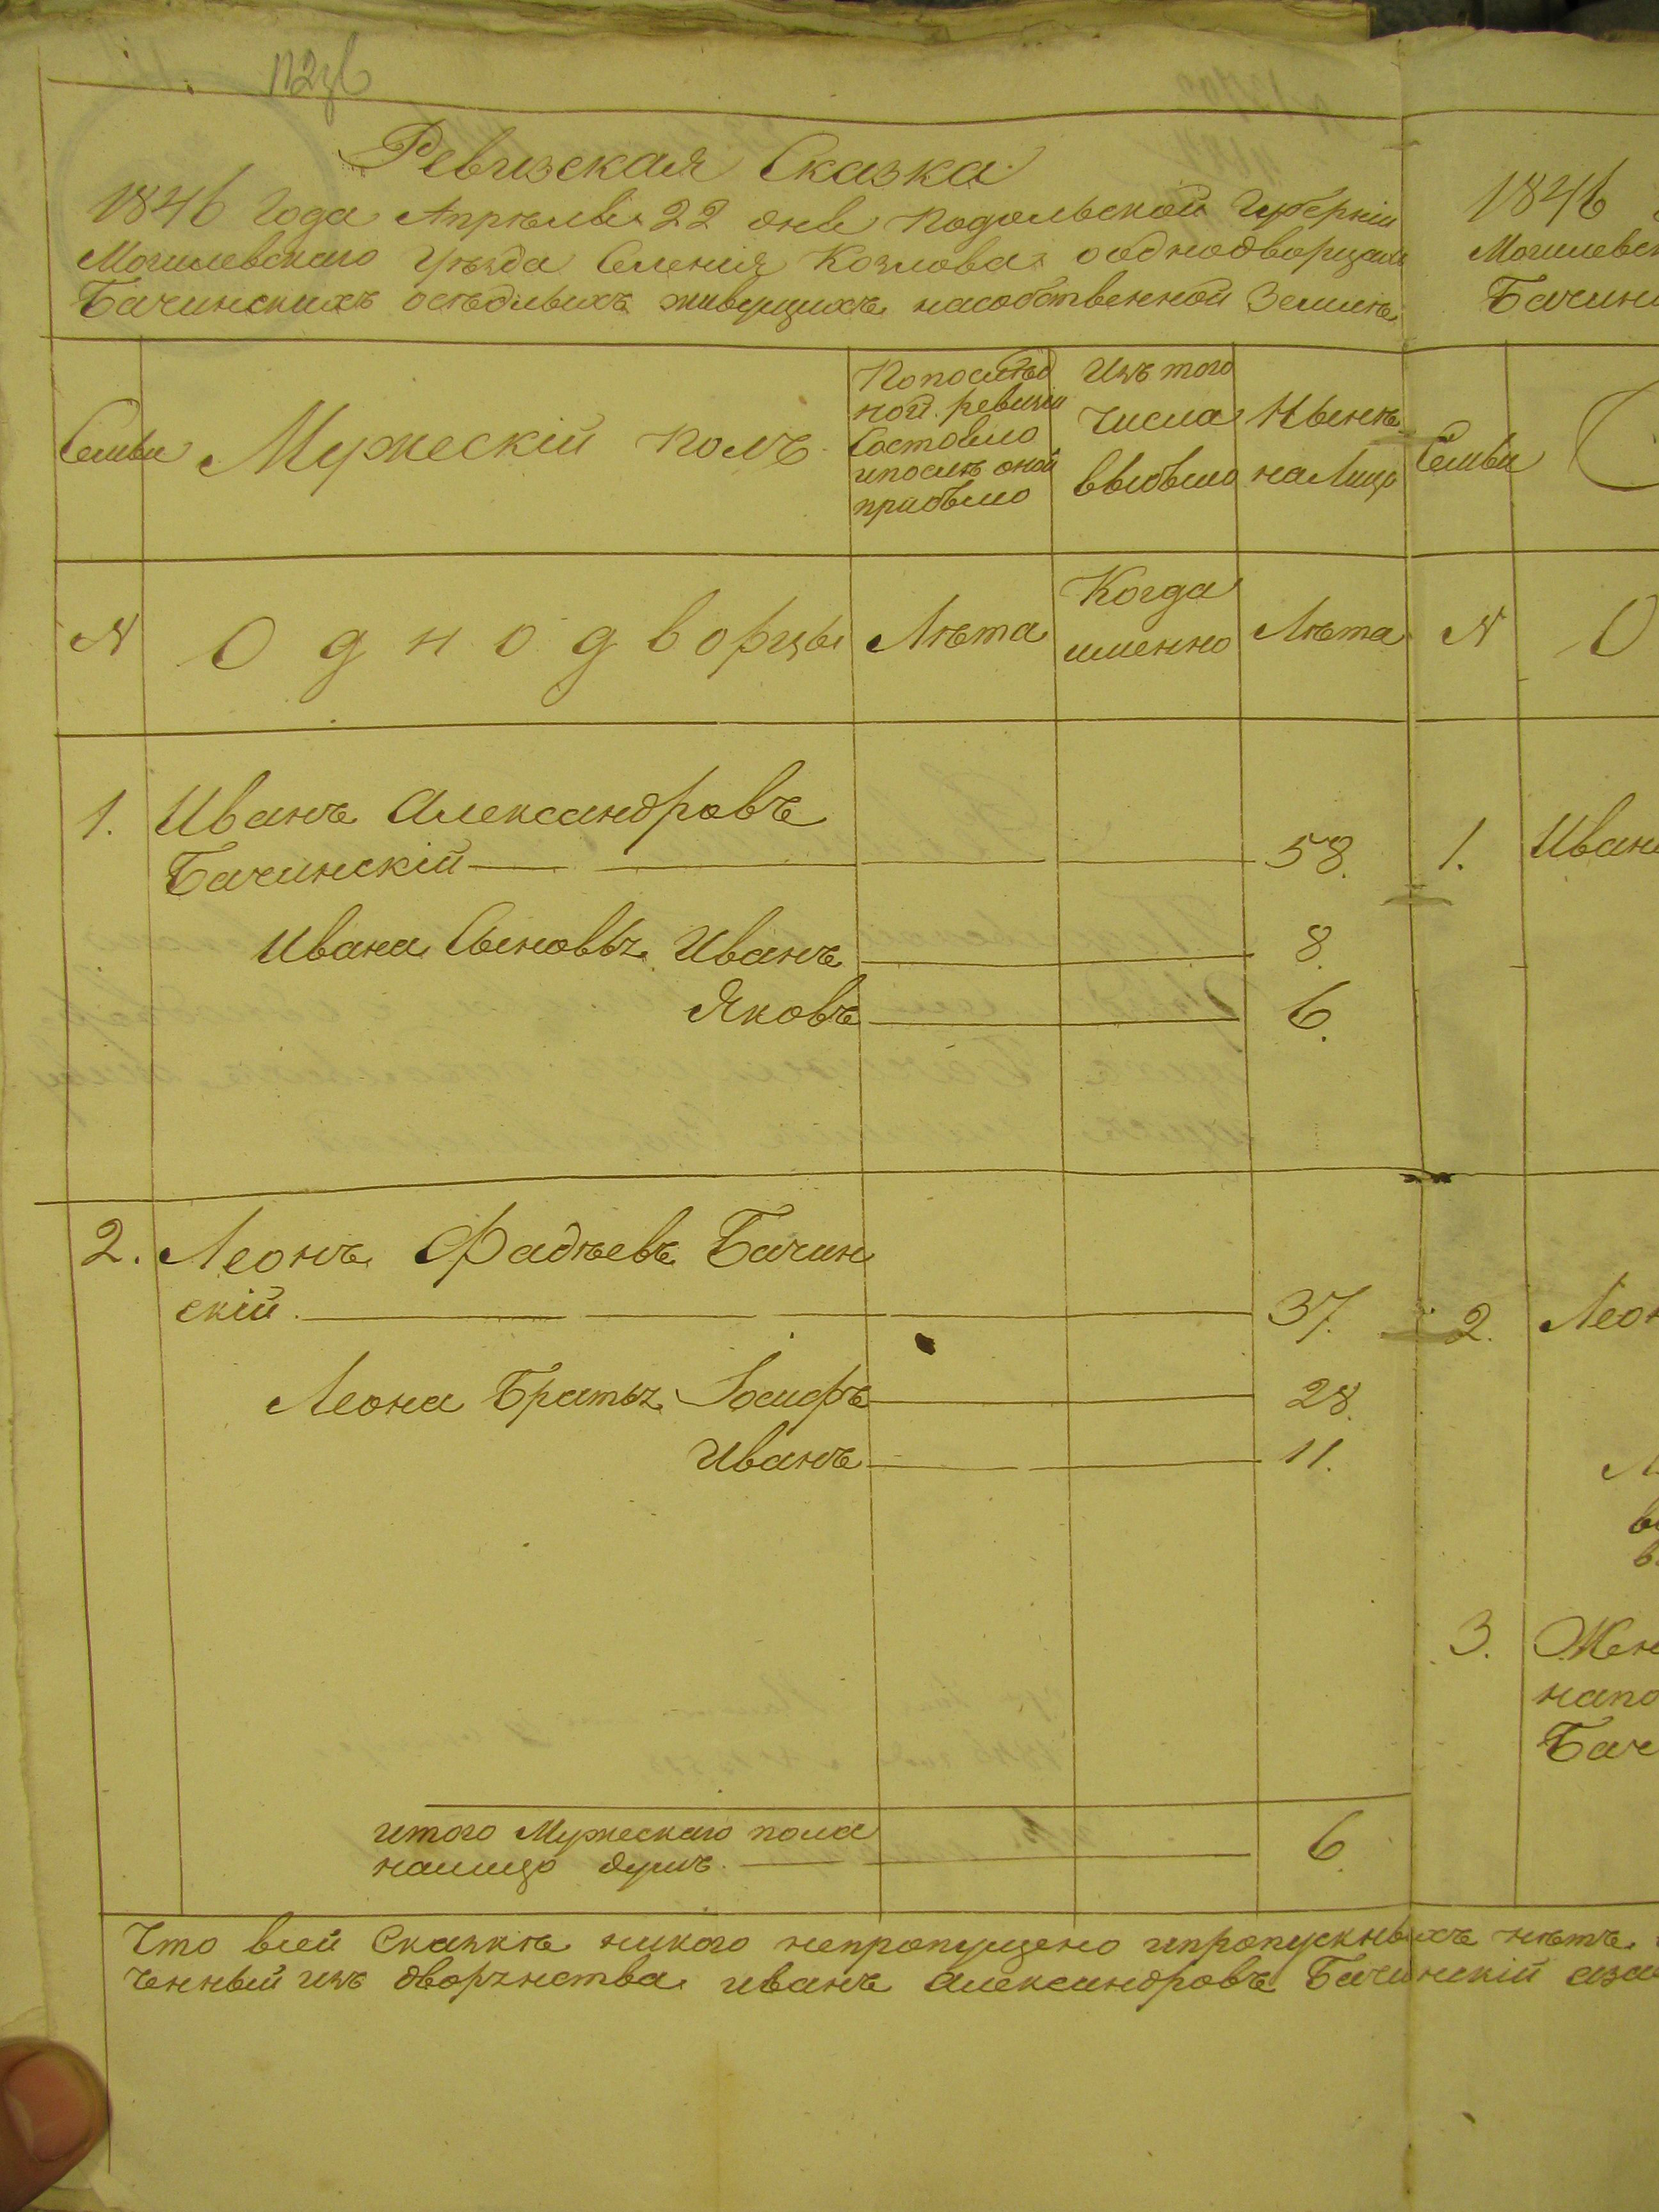 Ревизская Сказка
1846 Года Апрѣля 22 дня Подольской Губерніи
Могилевскаго Уѣзда Селенія Козлова ооднодворцахъ
Бачинскихъ осѣдлыхъ живущихъ насобственной Землѣ
Семьи
Мужескій полъ
Попослѣд
ной ревизіи
Состояло
ипослѣ оной
прибыло
Изъ того
числа
выбыло
Нынѣ
наЛицо
N
Однодворцы
Лѣта
Когда
именно
Лѣта
1. Иванъ Александровъ
Бачинскій 58.
Ивана Сыновья Иванъ 8.
Яковъ 6.
2. Леонъ Фадѣевъ Бачин
скій 37.
Леона Братья Іосифъ 28.
Иванъ 11.
итого Мужескаго пола
налицо душъ 6.
Что всей Сказкѣ никого непропущено ипропускныхъ нѣтъ
ченный изъ дворянства иванъ Александровъ Бачинскій аза
1846
Могилевск
Бачинс
Семьи
N О
1. Иванъ
2. Леон
3. Жен
напо
Бач